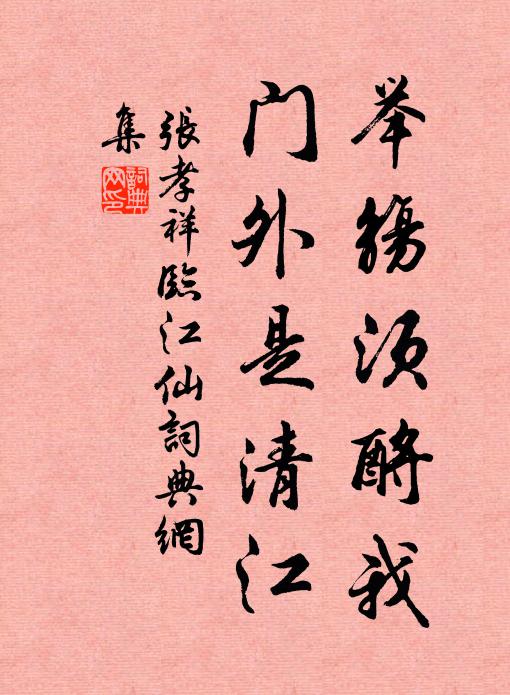 举觞须酹我
门外是清江
張孝祥臨江仙詞典網
集
詞典网印